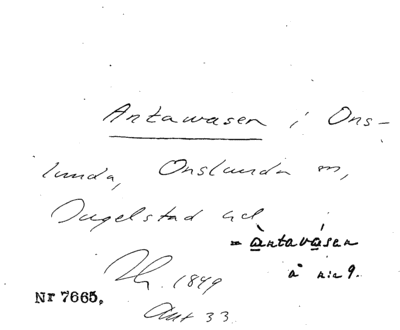 Antawasen i Ons-
lunda, Onslunda sn,
Ingelstad hd
= àntavásen
å n:e 9.
1849
Nr 7665,
Akt 33